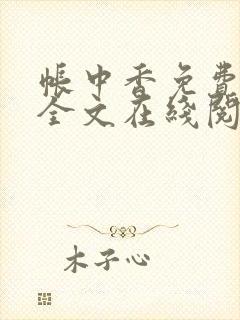 帐中香免费
全文在线阅
木子心